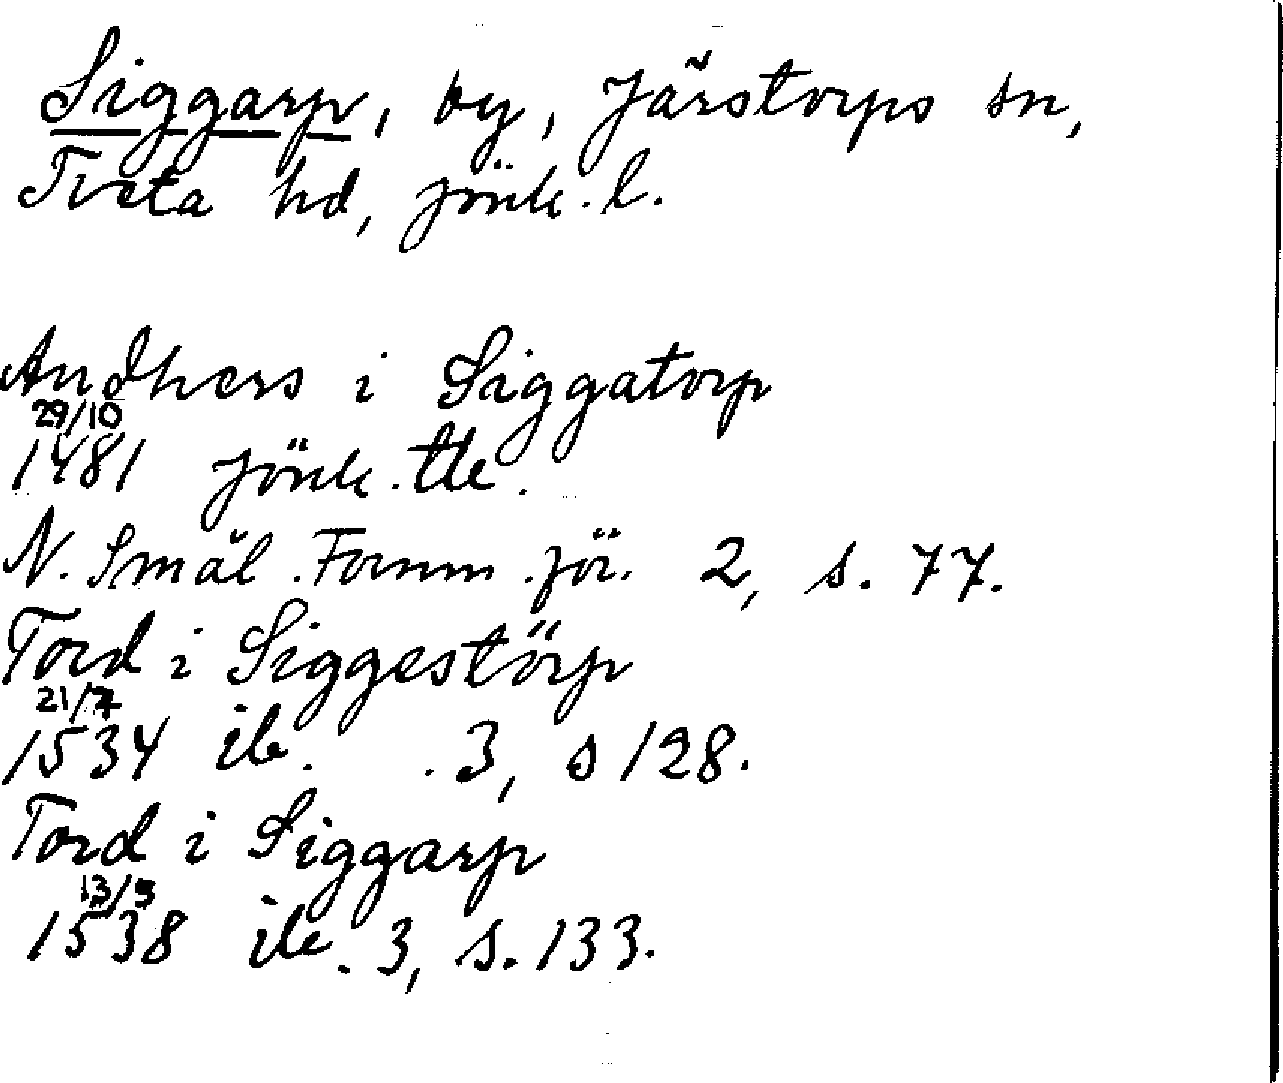 Siggarp, by, Järstorps sn,
Tveta hd, Jönk. l.
Andhers i Siggatorp
29/10
1481 Jönk. tb.
N. Smål. Fornm. för. 2, s. 77.
Tord i Siggestörp
21/7
1534 ib. . 3, s 128.
Tord i Siggarp
13/9
1538 ib. 3, s. 133.